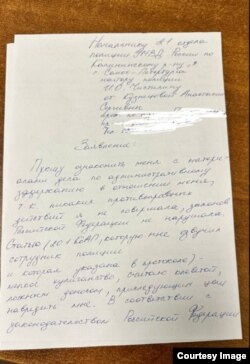 Начальнику № 1 отдела
полиции УМВД России по
Калининскому р-ну
г. Санкт-Петербурга
майору полиции
И.О.
от Кузнецовой Анастасии
Сергеевны
Заявление:
Прошу ознакомить меня с матери-
алами дела по административному
задержанию в отношение меня,
т.к. никаких противоправных
действий я не совершала, законов
Российской Федерации не нарушала.
Статью (20.1 КоАП, которую мне озвучил
сотрудник полиции
и которая указана в протоколе) -
мелкое хулиганство, считаю клеветой,
ложным доносом, преследующим цель
навредить мне. В соответствии с
законодательством Российской Федерации
Courtesy Image